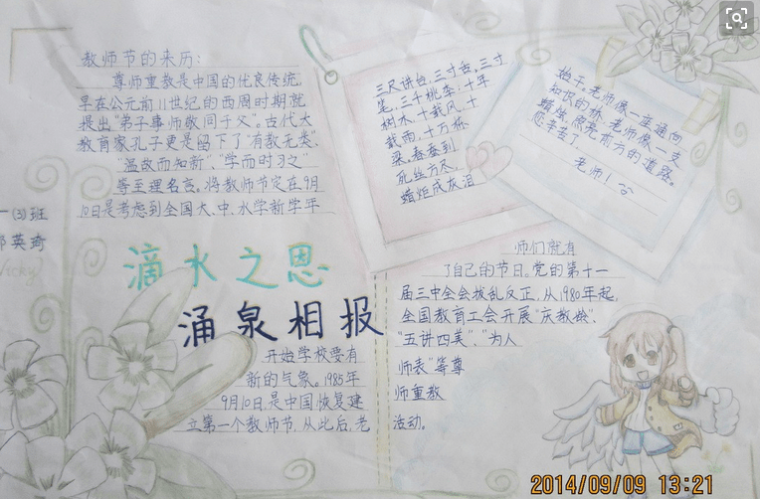 教师节的来历:
尊师重教是中国的优良传统,
早在公元前11世纪的西周时期就
提出"弟子事师敬同于父"。古代大
教育家孔子更是留下了"有教无类"、
"温故而知新"、"学而时习之"
等至理名言。将教师节定在9月
10日是考虑到全国大、中、小学新学年
滴水之恩
涌泉相报
开始学校要有
新的气象。1985年
9月10日,是中国恢复建
立第一个教师节,从此后,老
三尺讲台,三寸舌,三寸
笔,三千桃李;十年
树木,十载风,十
载雨,十万栋
梁。春蚕到
死丝方尽,
蜡炬成灰泪
知识的桥,老师像一支
蜡烛,照亮前方的道路。
您辛苦了
老师!
师们就有
了自己的节日。党的第十一
届三中全会拨乱反正,从1980年起,
全国教育工会开展
"五讲四美"、"为人
师表"等尊
师重教
活动。
一(3)班
英琦
Vicky
2014/09/09 13:21